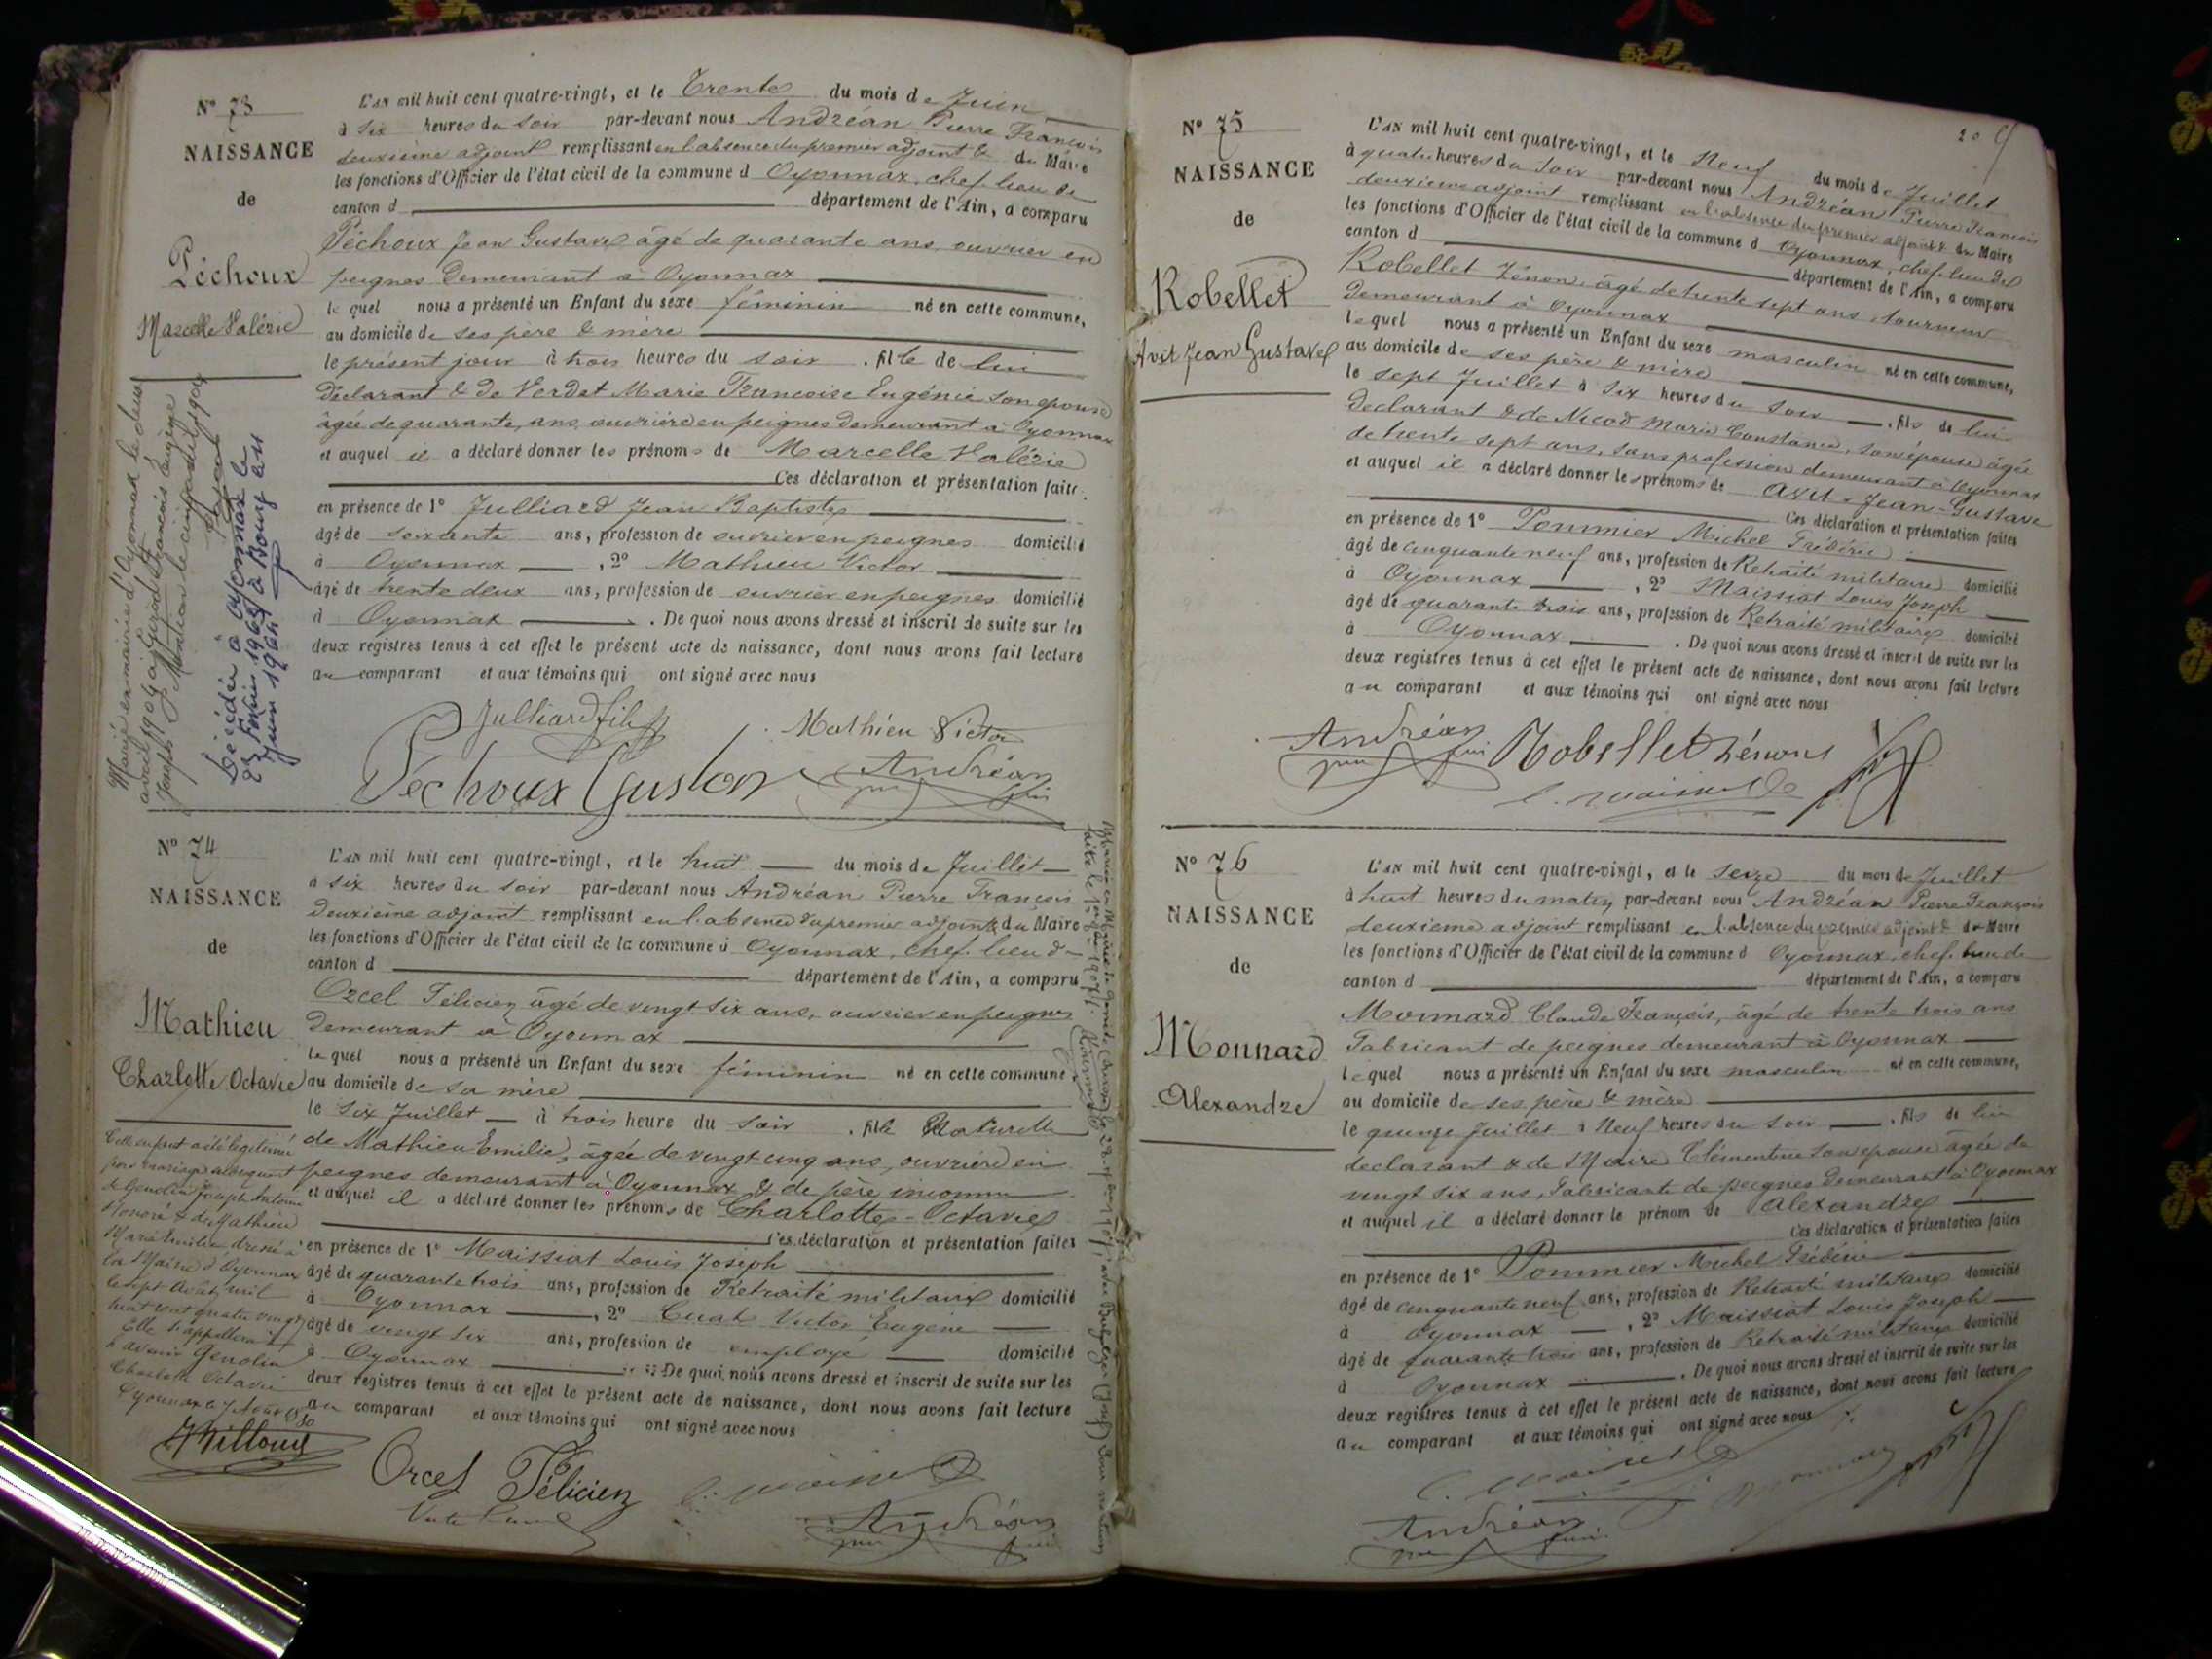 N° 73
NAISSANCE
de
Péchoux
Marcelle Valérie
L'an mil huit cent quatre-vingt, et le Trente du mois de Juin
à six heures du soir par-devant nous Andréan Pierre François
deuxième adjoint remplissant en l'absence du premier adjoint & du Maire
les fonctions d'Officier de l'état civil de la commune d Oyonnax, chef-lieu de
canton d département de l'Ain, a comparu
Péchoux Jean Gustave âgé de quarante ans, ouvrier en
peignes demeurant à Oyonnax
le quel nous a présenté un Enfant du sexe féminin né en cette commune,
au domicile de ses père & mère
le présent jour à trois heures du soir . fille de lui
déclarant & de Verdet Marie Françoise Eugénie son épouse
âgée de quarante ans, ouvrière en peignes demeurant à Oyonnax
et auquel il a déclaré donner les prénoms de Marcelle Valérie
Ces déclaration et présentation faites
en présence de 1° Julliard Jean Baptiste
âgé de soixante ans, profession de ouvrier en peignes domicilié
à Oyonnax , 2° Mathieu Victor
âgé de trente deux ans, profession de ouvrier en peignes domicilié
à Oyonnax . De quoi nous avons dressé et inscrit de suite sur les
deux registres tenus à cet effet le présent acte de naissance, dont nous avons fait lecture
au comparant et aux témoins qui ont signé avec nous
Julliard fils
Mathieu Victor
Péchoux Gustave
Andréan
Marié en mairie d'Oyonnax le deux
avril 1904 à Girod François Eugène
Joseph. Mention le cinq avril 1904
Décédée à Oyonnax le
27 Février 1963 à Bourg en
Juin 1964
N° 74
NAISSANCE
de
Mathieu
Charlotte Octavie
L'an mil huit cent quatre-vingt, et le huit du mois de Juillet
à six heures du soir par-devant nous Andréan Pierre François
deuxième adjoint remplissant en l'absence du premier adjoint & du Maire
les fonctions d'Officier de l'état civil de la commune d Oyonnax, chef-lieu d
canton d département de l'Ain, a comparu
Orcel Félicien âgé de vingt six ans, ouvrier en peignes
demeurant à Oyonnax
le quel nous a présenté un Enfant du sexe féminin né en cette commune
au domicile de sa mère
le six Juillet à trois heure du soir . fille Naturelle
de Mathieu Emilie, âgée de vingt cinq ans, ouvrière en
peignes demeurant à Oyonnax & de père inconnu
et auquel il a déclaré donner les prénoms de Charlotte-Octavie
Ces déclaration et présentation faites
en présence de 1° Maissiat Louis Joseph
âgé de quarante trois ans, profession de Retraité militaire domicilié
à Oyonnax , 2° Cuat Victor Eugène
âgé de vingt six ans, profession de employé domicilié
à Oyonnax De quoi nous avons dressé et inscrit de suite sur les
deux registres tenus à cet effet le présent acte de naissance, dont nous avons fait lecture
au comparant et aux témoins qui ont signé avec nous
Cette enfant a été légitimée
par mariage subséquent
de Genolin Joseph Antoine
Honoré & de Mathieu
Marie Emilie dressé à
la Mairie d'Oyonnax
le sept Août mil
huit cent quatre vingt
Elle s'appellera
à l'avenir Genolin
Charlotte Octavie
Oyonnax le 7 Août 1880
Orcel Félicien
Andréan
N° 75
NAISSANCE
de
Robellet
Avit Jean Gustave
20
L'an mil huit cent quatre-vingt, et le Neuf du mois de Juillet
à quatre heures du soir par-devant nous Andréan Pierre François
deuxième adjoint remplissant en l'absence du premier adjoint & du Maire
les fonctions d'Officier de l'état civil de la commune d Oyonnax, chef-lieu de
canton d département de l'Ain, a comparu
Robellet Zénon, âgé de trente sept ans, tourneur
demeurant à Oyonnax
lequel nous a présenté un Enfant du sexe masculin né en cette commune,
au domicile de ses père & mère
le sept Juillet à six heures du soir . fils de lui
déclarant & de Nicod Marie Constance, son épouse âgée
de trente sept ans, sans profession demeurant à Oyonnax
et auquel il a déclaré donner les prénoms de Avit-Jean-Gustave
Ces déclaration et présentation faites
en présence de 1° Pommier Michel Frédéric
âgé de cinquante neuf ans, profession de Retraité militaire domicilié
à Oyonnax , 2° Maissiat Louis Joseph
âgé de quarante trois ans, profession de Retraité militaire domicilié
à Oyonnax . De quoi nous avons dressé et inscrit de suite sur les
deux registres tenus à cet effet le présent acte de naissance, dont nous avons fait lecture
au comparant et aux témoins qui ont signé avec nous
Andréan
Robellet Zénon
N° 76
NAISSANCE
de
Monnard
Alexandre
L'an mil huit cent quatre-vingt, et le seize du mois de Juillet
à huit heures du matin par-devant nous Andréan Pierre François
deuxième adjoint remplissant en l'absence du premier adjoint & du Maire
les fonctions d'Officier de l'état civil de la commune d Oyonnax, chef-lieu de
canton d département de l'Ain, a comparu
Monnard Claude François, âgé de trente trois ans
Fabricant de peignes demeurant à Oyonnax
lequel nous a présenté un Enfant du sexe masculin né en cette commune,
au domicile de ses père & mère
le quinze Juillet à Neuf heures du soir . fils de lui
déclarant & de Maire Clémentine son épouse âgée de
vingt six ans, Fabricante de peignes demeurant à Oyonnax
et auquel il a déclaré donner le prénom de Alexandre
Ces déclaration et présentation faites
en présence de 1° Pommier Michel Frédéric
âgé de cinquante neuf ans, profession de Retraité militaire domicilié
à Oyonnax , 2° Maissiat Louis Joseph
âgé de quarante trois ans, profession de Retraité militaire domicilié
à Oyonnax . De quoi nous avons dressé et inscrit de suite sur les
deux registres tenus à cet effet le présent acte de naissance, dont nous avons fait lecture
au comparant et aux témoins qui ont signé avec nous
Andréan